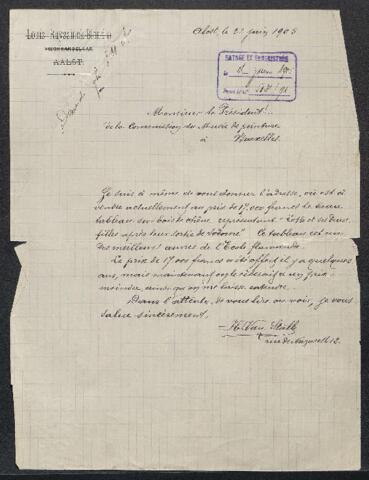 AALST.
Alost, le 2 juin 1905
DATE ET ENREGISTRÉE
Monsieur le Président
de la Commission du Musée de peinture
à Bruxelles.
Je suis à même de vous donner l'adresse, où est à
vendre actuellement au prix de 17,000 francs le beau
tableau sur bois de chêne, représentant "Loth et ses deux
filles après leur sortie de Sodome". Ce tableau est un
des meilleurs œuvres de l'École flamande.
Le prix de 17000 francs a été offert il y a quelques
ans, mais maintenant on le céderait à un prix
moindre, ainsi qu'on me laisse entendre.
Dans l'attente de vous lire ou voir, je vous
salue sincèrement,
Van
rue de Nazareth 12.